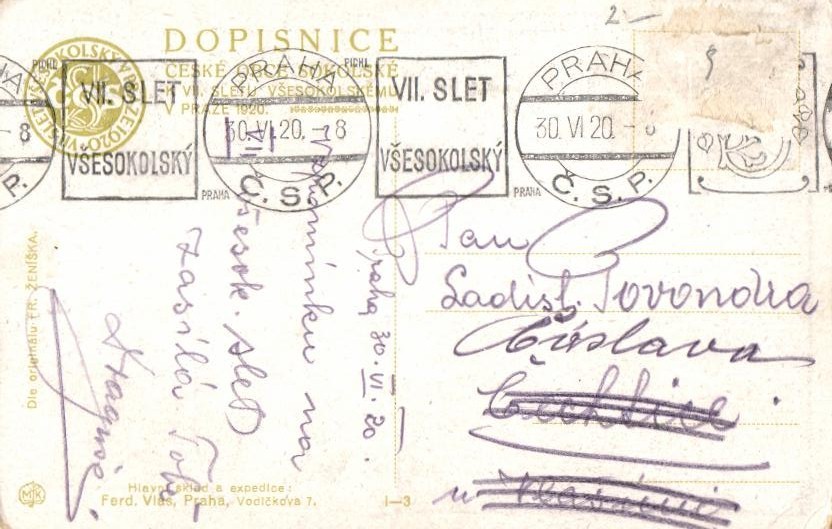 2 –
DOPISNICE
ČESKÉ OBCE SOKOLSKÉ
K VII. SLETU VŠESOKOLSKÉMU
V PRAZE 1920.
PRAHA
PICHL
VII. SLET
VŠESOKOLSKÝ
PRAHA
30.VI.20. – 8
Č.S.P.
PRAHA
PICHL
VII. SLET
VŠESOKOLSKÝ
PRAHA
PRAHA
30.VI 20. – 8
Č.S.P.
– 8
S.P.
Praha 30. VI. 20.
Vzpomínku na
VII. všesok. slet
zasílá Tobě
Pan
Ladisl. Povondra
Čáslava
Čechtice
u Vlašimi
Dle originálu FR. ŽENÍŠKA.
MJK
Hlavní sklad a expedice:
Ferd. Vlas, Praha, Vodičkova 7.
I–3